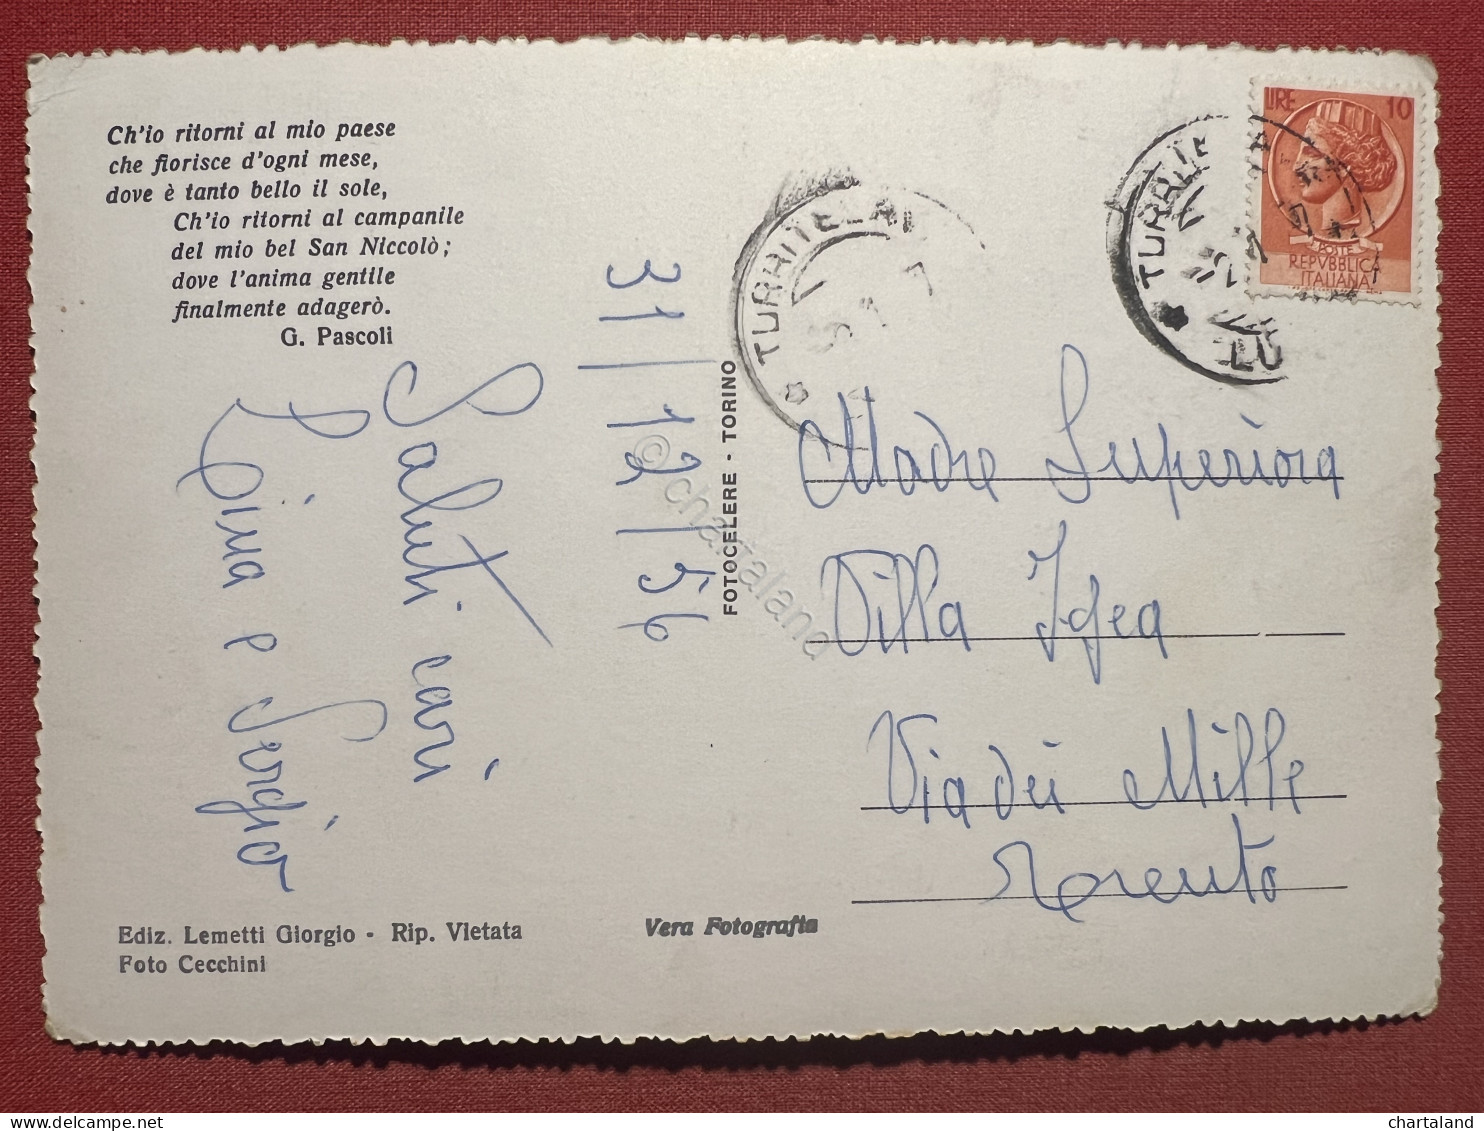 Ch'io ritorni al mio paese
che fiorisce d'ogni mese,
dove è tanto bello il sole,
Ch'io ritorni al campanile
del mio bel San Niccolò;
dove l'anima gentile
finalmente adagerò.
G. Pascoli
31/12/56
Saluti cari
Rina e Sergio
Ediz. Lemetti Giorgio - Rip. Vietata
Foto Cecchini
Vera Fotografia
FOTOCELERE - TORINO
© chartaland
TURRITE
LIRE 10
POSTE
REPVBBLICA
ITALIANA
Madre Superiora
Villa Igea
Via dei Mille
chartaland